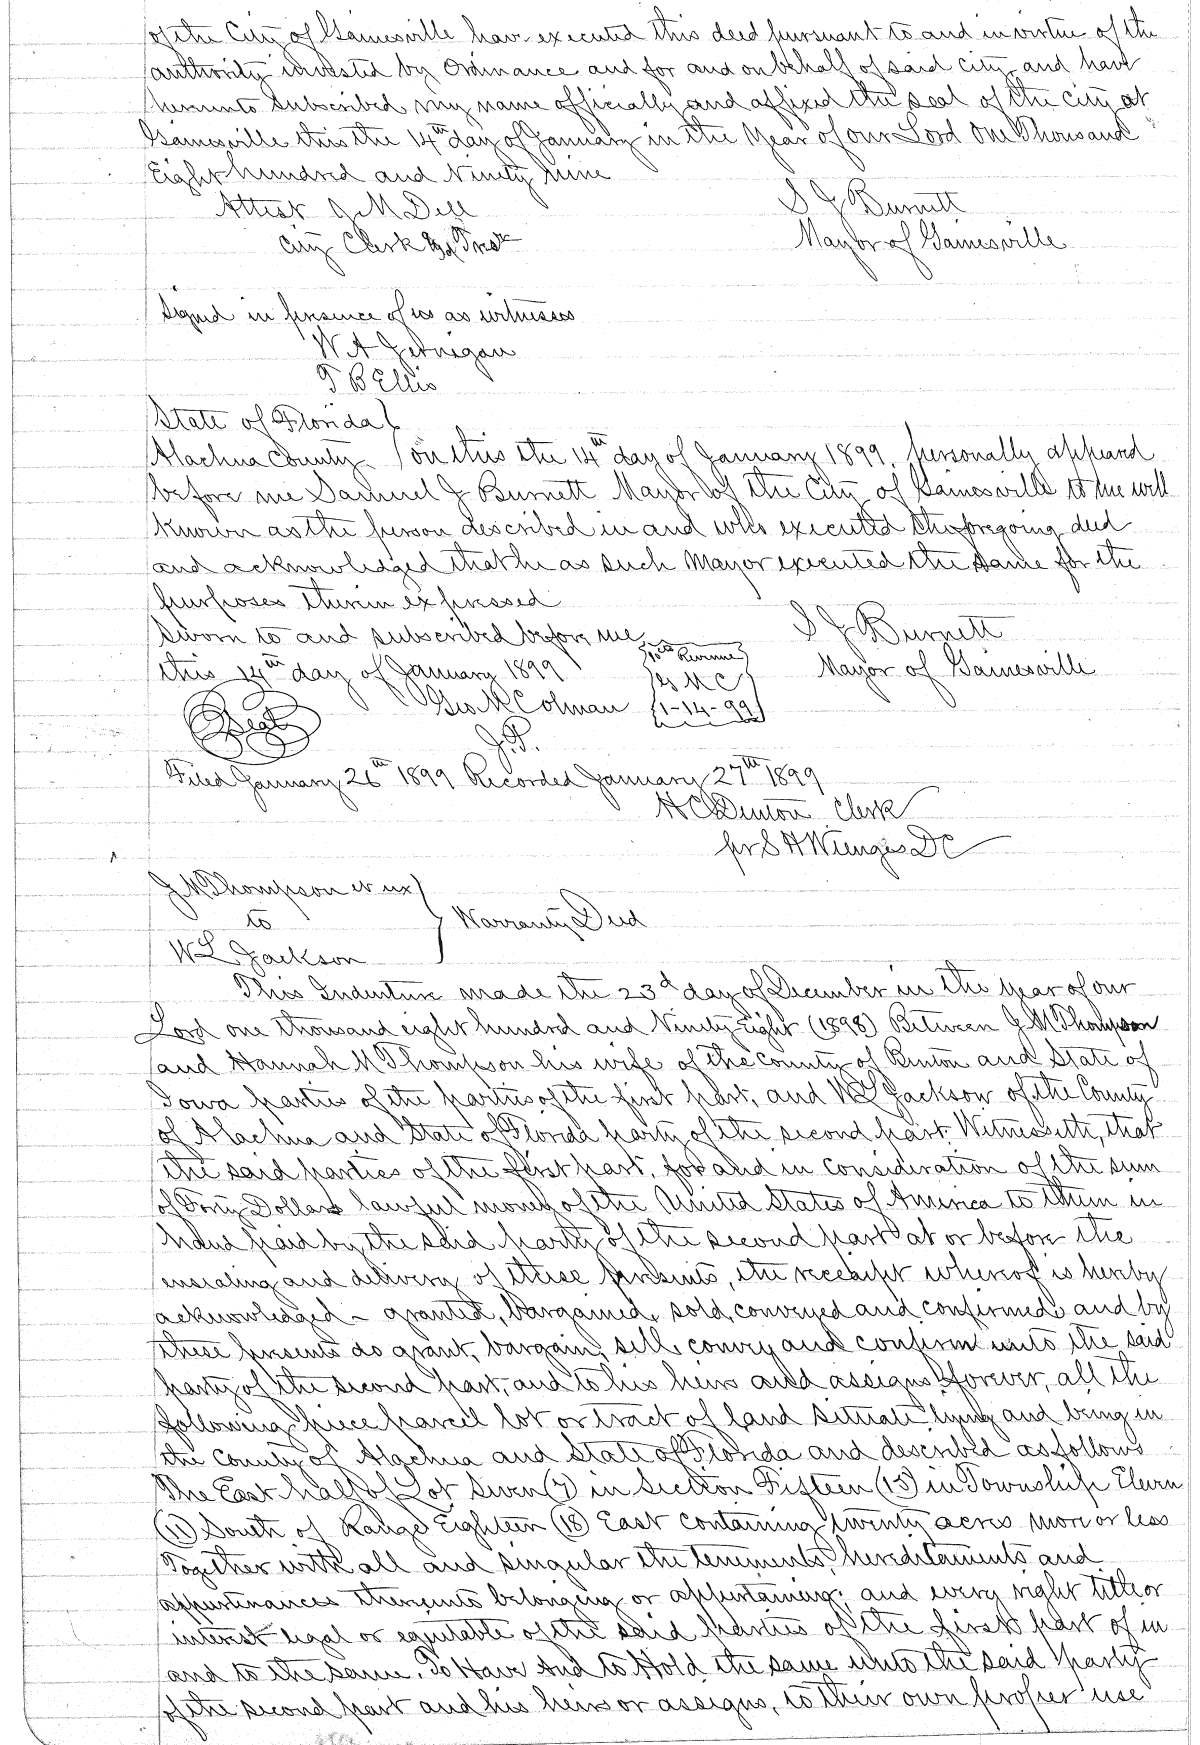 of the City of Gainesville have executed this deed pursuant to and in virtue of the
authority invested by Ordinance and for and on behalf of said City and have
hereunto subscribed my name officially and affixed the seal of the City at
Gainesville this the 14th day of January in the Year of our Lord One Thousand
Eight hundred and Ninety nine
Attest J M Dell
S J Burnett
City Clerk & Treas
Mayor of Gainesville
Signed in presence of us as witnesses
W A Jernigan
T B Ellis
State of Florida }
Alachua County } On this the 14th day of January 1899, personally appeared
before me Samuel J Burnett Mayor of the City of Gainesville to me well
known as the person described in and who executed the foregoing deed
and acknowledged that he as such Mayor executed the same for the
purposes therein expressed
Sworn to and subscribed before me
S J Burnett
this 14th day of January 1899
Mayor of Gainesville
10cts Revenue
G K C
1-14-99
Geo K Colman
Seal
J.P.
Filed January 26th 1899 Recorded January 27th 1899
H C Denton Clerk
pr S H Wienges DC
J M Thompson et ux }
to } Warranty Deed
W L Jackson
This Indenture made the 23d day of December in the year of our
Lord one thousand eight hundred and Ninety Eight (1898) Between J M Thompson
and Hannah M Thompson his wife of the County of Benton and State of
Iowa parties of the parties of the first part, and W L Jackson of the County
of Alachua and State of Florida party of the second part. Witnesseth, that
the said parties of the first part, for and in consideration of the sum
of Forty Dollars lawful money of the United States of America to them in
hand paid by the said party of the second part at or before the
ensealing and delivery of these presents, the receipt whereof is hereby
acknowledged - granted, bargained, sold, conveyed and confirmed and by
these presents do grant, bargain, sell, convey and confirm unto the said
party of the second part, and to his heirs and assigns forever, all the
following piece parcel lot or tract of land situate lying and being in
the County of Alachua and State of Florida and described as follows
The East half of Lot Seven (7) in Section Fifteen (15) in Township Eleven
(11) South of Range Eighteen (18) East containing twenty acres more or less
Together with all and singular the tenements, hereditaments and
appurtenances thereunto belonging or appertaining; and every right title or
interest legal or equitable of the said parties of the first part of in
and to the same. To Have And to Hold the same unto the said party
of the second part and his heirs or assigns, to their own proper use